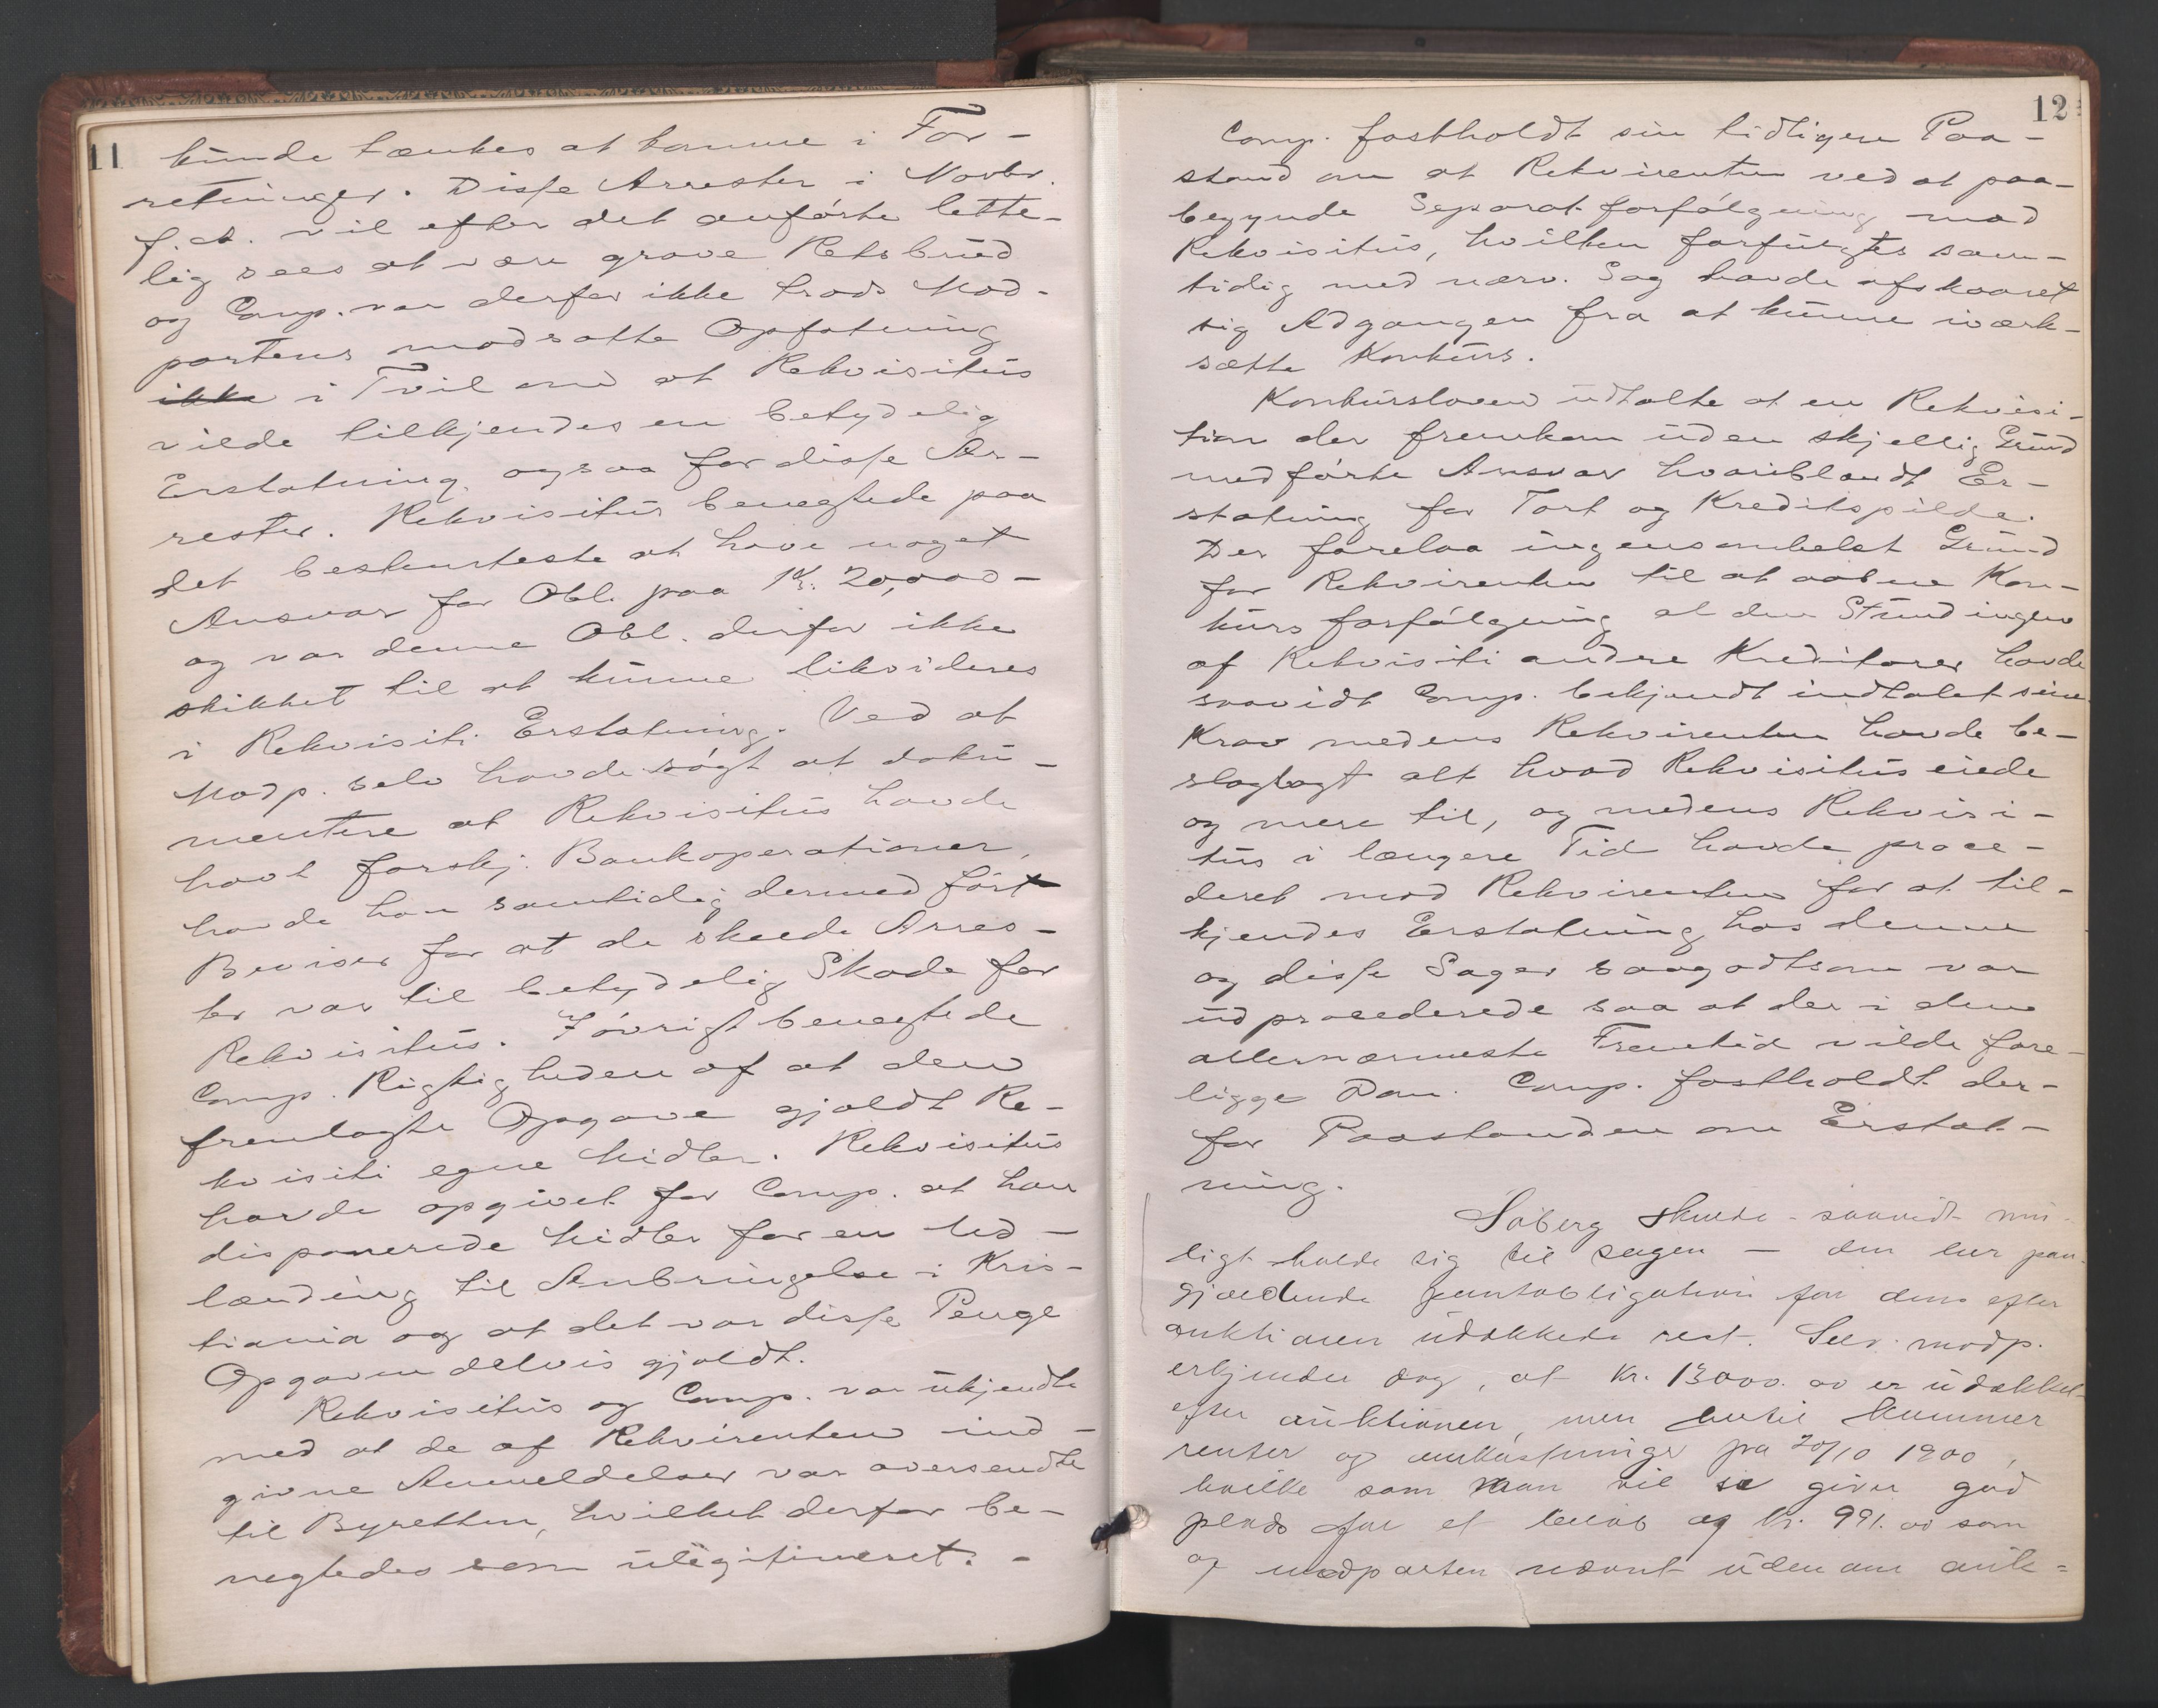 11
kunde tænkes at komme i For-
retninger. Disse Arrester i Novbr.
f. A. vil efter det anførte lette-
lig sees at være grove Retsbrud
og Comp. var derfor ikke trods Mod-
partens modsatte Opfatning
ikke i Tvil om at Rekvisitus
vilde tilkjendes en betydelig
Erstatning ogsaa for disse Ar-
rester. Rekvisitus benegtede paa
det bestemteste at have noget
Ansvar for Obl. paa Kr. 20,000-
og var denne Obl. derfor ikke
skikket til at kunne likvideres
i Rekvisiti Erstatning. Ved at
Modp. selv havde søgt at doku-
mentere at Rekvisitus havde
havt forskj. Bankoperationer,
havde han samtidig dermed ført
Beviser for at de skeede Arres-
ter var til betydelig Skade for
Rekvisitus. Iøvrigt benegtede
Comp. Rigtigheden af at den
fremlagte Opgave gjaldt Re-
kvisiti egne Midler. Rekvisitus
havde opgivet for Comp. at han
disponerede Midler for en Ud-
lænding til Anbringelse i Kris-
tiania og at det var disse Penge
Opgaven delvis gjaldt.
Rekvisitus og Comp. var ukjendte
med at de af Rekvirenten ind-
givne Anmeldelser var oversendte
til Byretten, hvilket derfor be-
negtedes som ulegitimeret. -
12
Comp. fastholdt sin tidligere Paa-
stand om at Rekvirenten ved at paa-
begynde Separatforfølgning mod
Rekvisitus, hvilken forfulgtes sam-
tidig med nærv. Sag havde afskaaret
sig Adgangen fra at kunne iværk-
sætte Konkurs.
Konkursloven udtalte at en Rekvisi-
tion der fremkom uden skjellig Grund
medførte Ansvar hvoriblandt Er-
statning for Tort og Kreditspilde.
Der forelaa ingensomhelst Grund
for Rekvirenten til at aabne Kon-
kursforfølgning al den Stund ingen
af Rekvisiti andre Kreditorer havde
saavidt Comp. bekjendt indtalet sine
Krav medens Rekvirenten havde be-
slaglagt alt hvad Rekvisitus eiede
og mere til, og medens Rekvisi-
tus i længere Tid havde proce-
deret mod Rekvirenten for at til-
kjendes Erstatning hos denne
og disse Sager saagodtsom var
udprocederede saa at der i den
allernærmeste Fremtid vilde fore-
ligge Dom. Comp. fastholdt der-
for Paastanden om Erstat-
ning.
Soberg skulde saavidt mu-
ligt holde sig til sagen - den her paa-
gjældende pantobligation for dens efter
auktionen udækkede rest. Selv modp.
erkjender dog, at kr. 13000.00 er udækket
efter auktionen, men hertil kommer
renter og omkostninger fra 20/10 1900,
hvilke som man vil se giver god
plads for et beløb af kr. 991.00 som
og modparten nævnt udenom auk=